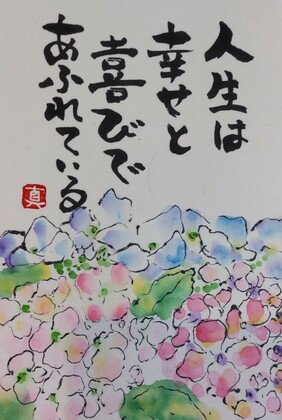 人生は
幸せと
喜びで
あふれている
真